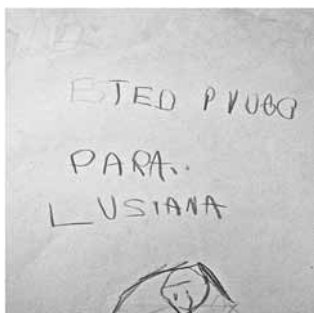 ESTED PVUGO
PARA..
LUSIANA